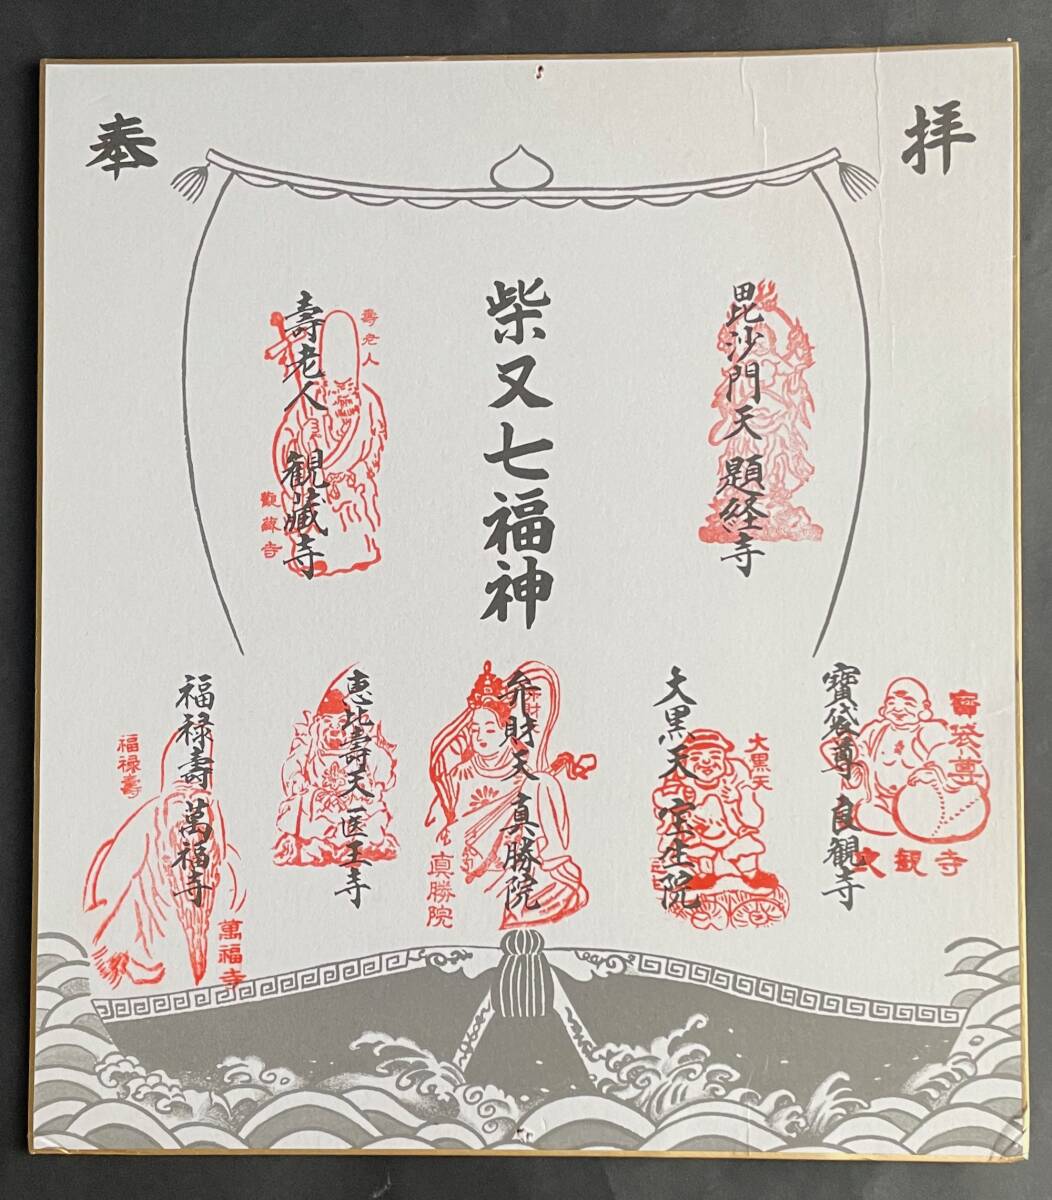 奉
拝
柴又七福神
毘沙門天 題経寺
壽老人 観蔵寺
壽老人
寶袋尊 良観寺
寶袋尊
観寺
大黒天 宝生院
大黒天
弁財天 真勝院
真勝院
恵比壽天 医王寺
福禄壽 萬福寺
福禄壽
萬福寺